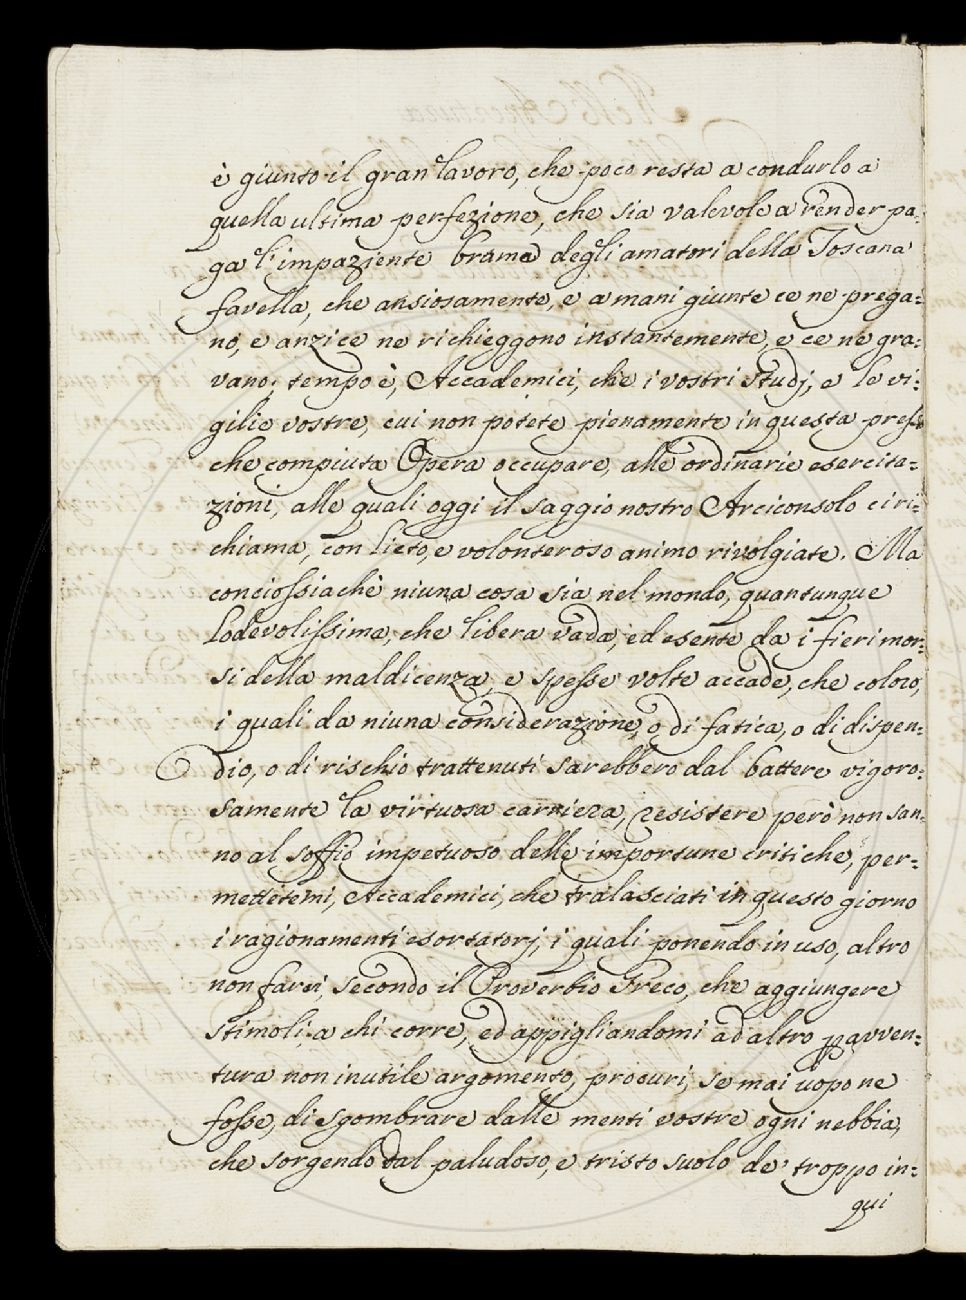 è giunto il gran lavoro, che poco resta a condurlo a
quella ultima perfezione, che sia valevole a render pa-
ga l'impaziente brama degli amatori della Toscana
favella, che ansiosamente, e a mani giunte ce ne prega=
no, e anzi ce ne richieggono instantemente, e ce ne gra=
vano; tempo è, Accademici, che i vostri studj, e le vi=
gilie vostre, cui non potete pienamente in questa pres=
che compiuta Opera occupare, alle ordinarie esercita=
zioni, alle quali oggi il saggio nostro Arciconsolo ci ri=
chiama, con lieto, e volonteroso animo rivolgiate. Ma
conciossiachè niuna cosa sia nel mondo, quantunque
Lodevolissima, che libera vada, ed esente da i fieri mor=
si della maldicenza, e spesse volte accade, che coloro,
i quali da niuna considerazione, o di fatica, o di dispen=
dio, o di rischio trattenuti sarebbero dal battere vigoro=
samente la virtuosa carriera, resistere però non san=
no al soffio impetuoso delle importune critiche, per=
mettetemi, Accademici, che tralasciati in questo giorno
i ragionamenti esortatorj, i quali ponendo in uso, altro
non farei, secondo il Proverbio Greco, che aggiungere
stimoli a chi corre, ed appigliandomi ad altro p avven=
tura non inutile argomento, procuri, se mai uopo ne
fosse, di sgombrare dalle menti vostre ogni nebbia,
che sorgendo dal paludoso, e tristo suolo de' troppo in=
qui